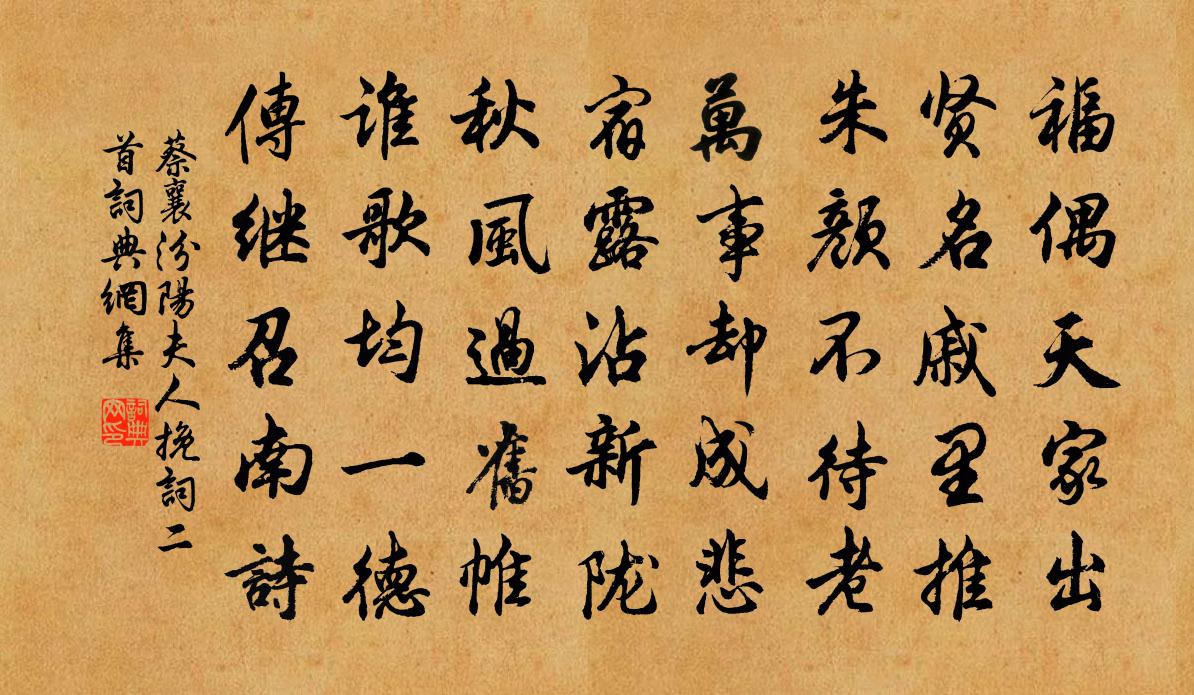 福偶天家出
贤名戚里推
朱颜不待老
萬事却成悲
宿露沾新陇
秋風過舊帷
谁歌均一德
傳继召南詩
蔡襄汾陽夫人挽詞二
首詞典網集
詞典
网印